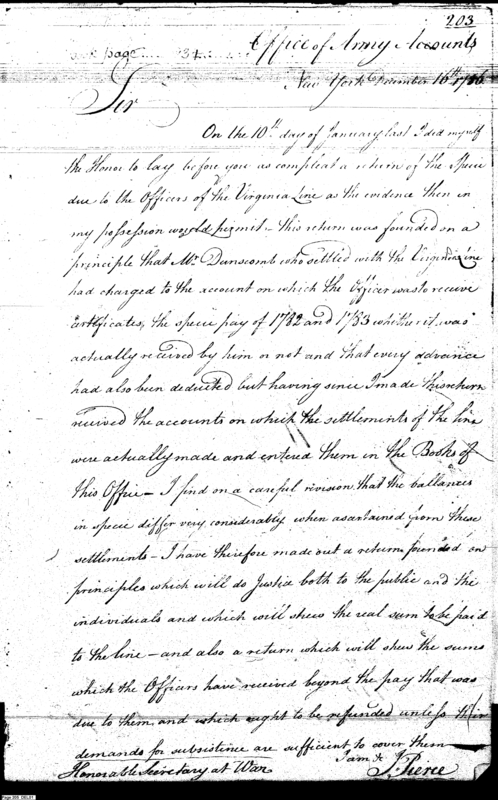 203
page 34
Office of Army Accounts
New York December 16th 1786
Sir
On the 10th day of January last I did myself
the Honor to lay before you as compleat a return of the specie
due to the Officers of the Virginia Line as the evidence then in
my possession would permit - this return was founded on a
principle that Mr Dunscomb who settled with the Virginia Line
had charged to the account on which the Officer was to receive
certificates, the specie pay of 1782 and 1783 whether it was
actually received by him or not and that every advance
had also been deducted but having since I made this return
received the accounts on which the settlements of the line
were actually made and entered them in the Books of
this Office - I find on a careful revision that the ballances
in specie differ very considerably when ascertained from these
settlements - I have therefore made out a return founded on
principles which will do Justice both to the public and the
individuals and which will shew the real sum to be paid
to the line - and also a return which will shew the sums
which the Officers have received beyond the pay that was
due to them, and which ought to be refunded unless their
demands for subsistence are sufficient to cover them
I am &
Honorable Secretary at War
J. Pierce